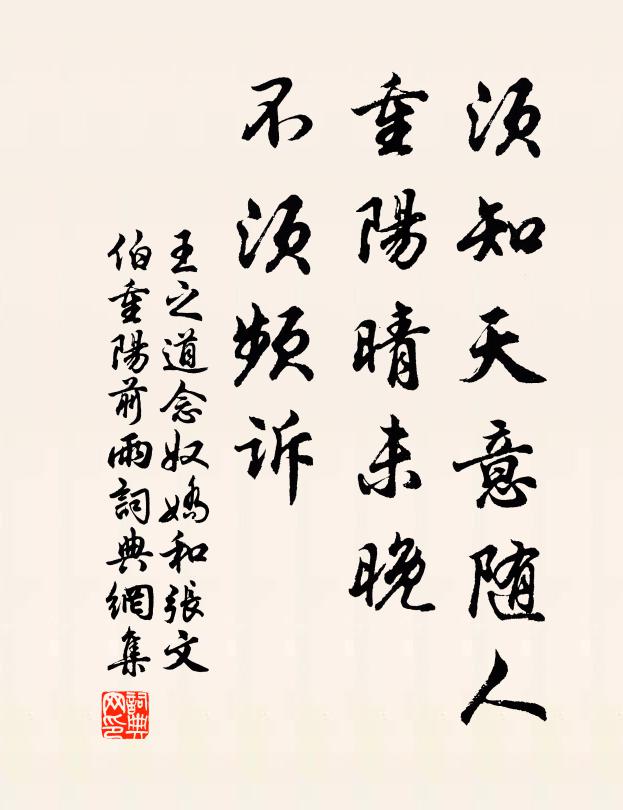 须知天意随人
重陽晴未晚
不须频诉
王之道念奴嬌和張文
伯重陽前雨詞典網集
詞典
网印